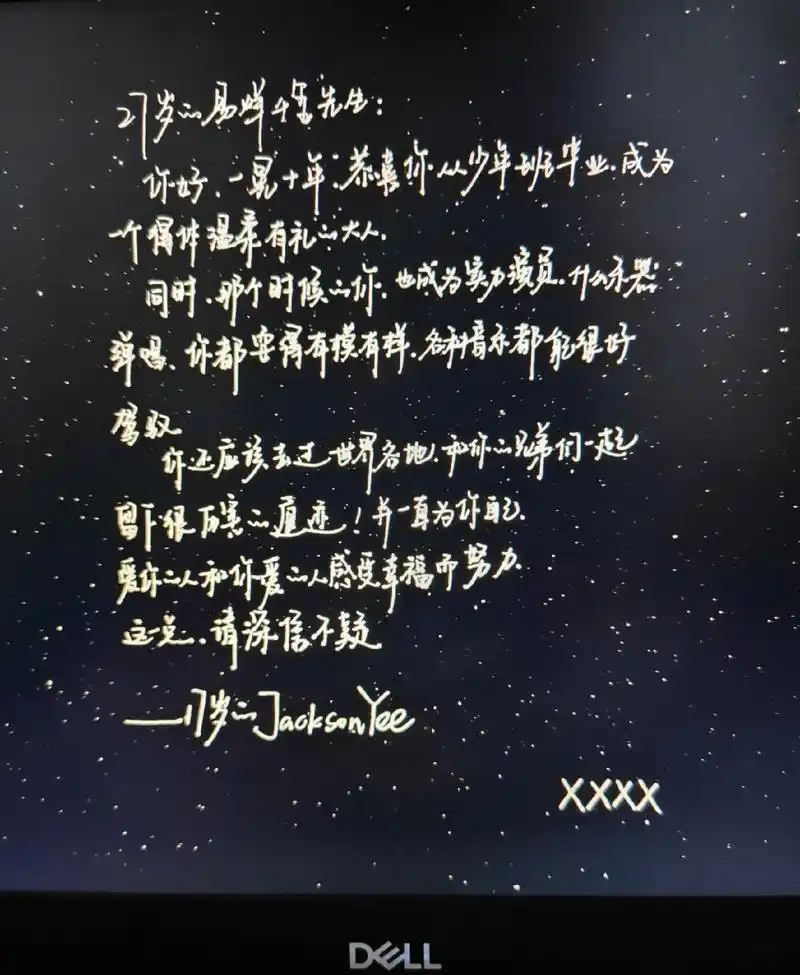 27岁的易烊千玺先生：
你好，一晃十年，恭喜你从少年班毕业，成为
一个得体温柔有礼的大人，
同时，那个时候的你，也成为实力演员，什么乐器
弹唱，你都耍得有模有样，各种音乐都能很好
驾驭
你还应该去过世界各地，和你的兄弟们一起
留下很厉害的痕迹！并一直为你自己，
爱你的人和你爱的人感受幸福而努力，
这一点，请深信不疑
——17岁的Jackson Yee
XXXX
DELL